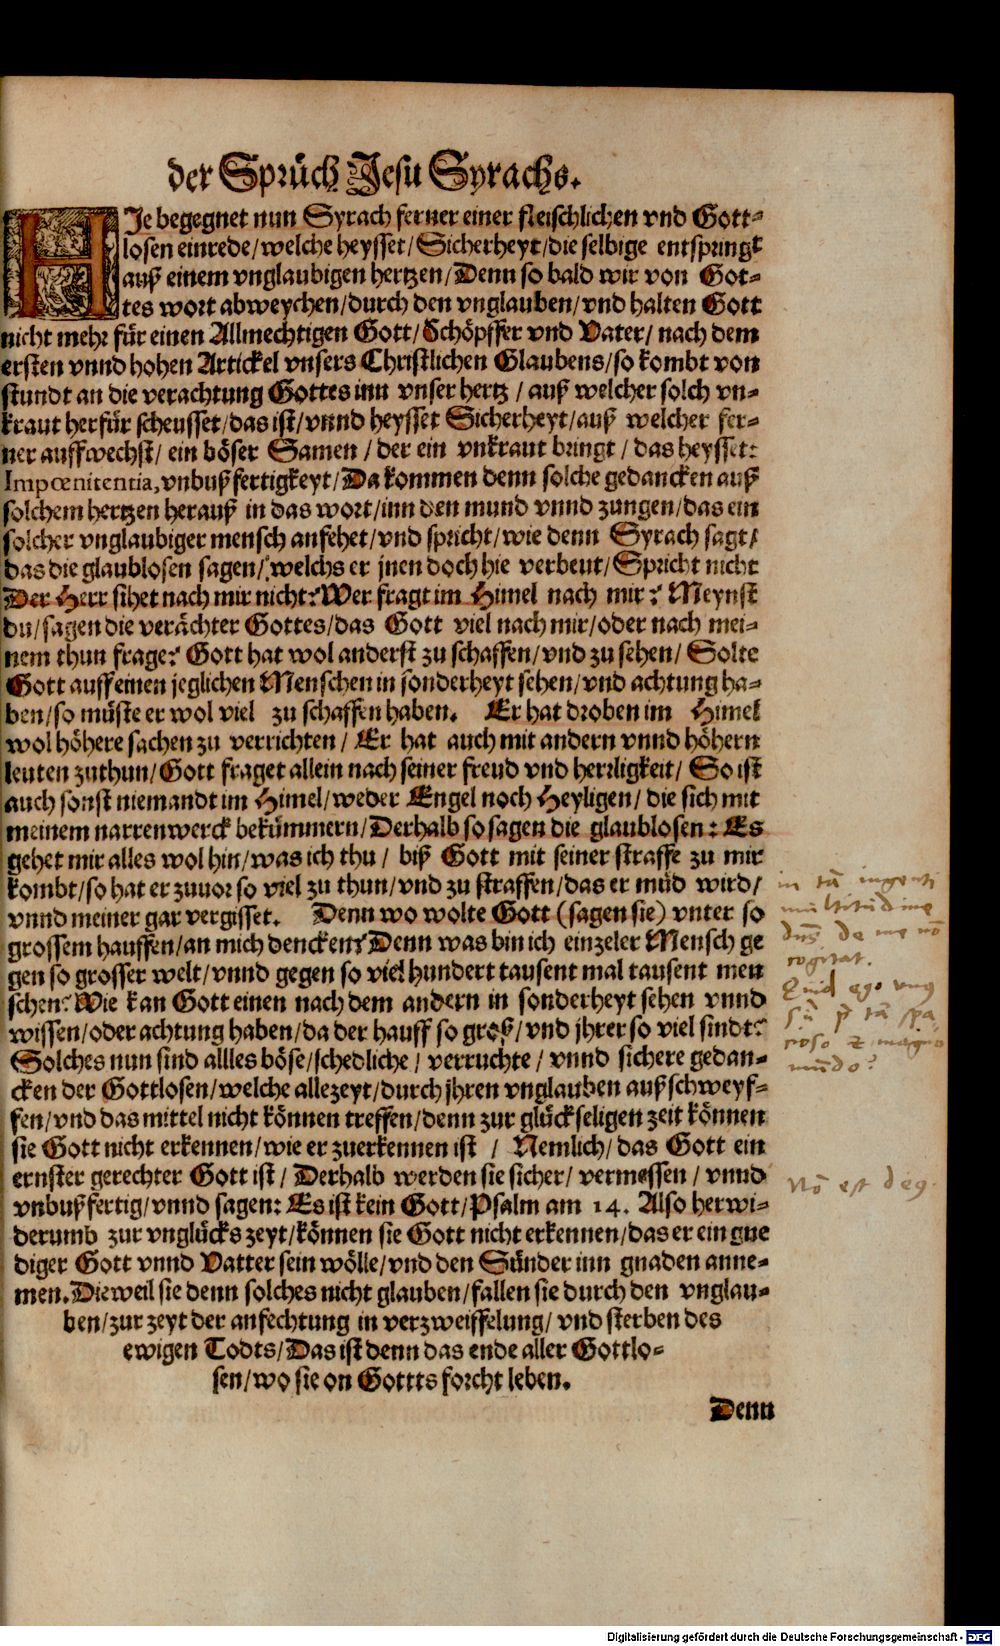 der Sprüch Jesu Syrachs.
HJe begegnet nun Syrach ferner einer fleischlichen vnd Gott-
losen einrede/welche heysset/Sicherheyt/die selbige entspringt
auß einem vnglaubigen hertzen/Denn so bald wir von Got-
tes wort abweychen/durch den vnglauben/vnd halten Gott
nicht mehr für einen Allmechtigen Gott/Schöpffer vnd Vater/nach dem
ersten vnnd hohen Artickel vnsers Christlichen Glaubens/so kombt von
stundt an die verachtung Gottes inn vnser hertz/auß welcher solch vn-
kraut herfür scheusset/das ist/vnnd heysset Sicherheyt/auß welcher fer-
ner auffwechst/ein böser Samen/der ein vnkraut bringt/das heysset:
Impœnitentia, vnbußfertigkeyt/Da kommen denn solche gedancken auß
solchem hertzen herauß in das wort/inn den mund vnnd zungen/das ein
solcher vnglaubiger mensch anfehet/vnd spricht/wie denn Syrach sagt/
das die glaublosen sagen/welchs er jnen doch hie verbeut/Spricht nicht
Der Herr sihet nach mir nicht? Wer fragt im Himel nach mir? Meynst
du/sagen die verächter Gottes/das Gott viel nach mir/oder nach mei-
nem thun frage? Gott hat wol anderst zu schaffen/vnd zu sehen/Solte
Gott auff einen jeglichen Menschen in sonderheyt sehen/vnd achtung ha-
ben/so müste er wol viel zu schaffen haben. Er hat droben im Himel
wol höhere sachen zu verrichten/Er hat auch mit andern vnnd höhern
leuten zuthun/Gott fraget allein nach seiner freud vnd herrligkeit/So ist
auch sonst niemandt im Himel/weder Engel noch Heyligen/die sich mit
meinem narrenwerck bekümmern/Derhalb so sagen die glaublosen: Es
gehet mir alles wol hin/was ich thu/biß Gott mit seiner straffe zu mir
kombt/so hat er zuuor so viel zu thun/vnd zu straffen/das er müd wird/
vnnd meiner gar vergisset. Denn wo wolte Gott (sagen sie) vnter so
grossem hauffen/an mich dencken? Denn was bin ich einzeler Mensch ge
gen so grosser welt/vnnd gegen so viel hundert tausent mal tausent men
schen? Wie kan Gott einen nach dem andern in sonderheyt sehen vnnd
wissen/oder achtung haben/da der hauff so groß/vnd jhrer so viel sindt?
Solches nun sind allles böse/schedliche/verruchte/vnnd sichere gedan-
cken der Gottlosen/welche allezeyt/durch jhren vnglauben außschweyf-
fen/vnd das mittel nicht können treffen/denn zur glückseligen zeit können
sie Gott nicht erkennen/wie er zuerkennen ist/Nemlich/das Gott ein
ernster gerechter Gott ist/Derhalb werden sie sicher/vermessen/vnnd
vnbußfertig/vnnd sagen: Es ist kein Gott/Psalm am 14. Also herwi-
derumb zur vnglücks zeyt/können sie Gott nicht erkennen/das er ein gne
diger Gott vnnd Vatter sein wölle/vnd den Sünder inn gnaden anne-
men. Dieweil sie denn solches nicht glauben/fallen sie durch den vnglau-
ben/zur zeyt der anfechtung in verzweiffelung/vnd sterben des
ewigen Todts/Das ist denn das ende aller Gottlo-
sen/wo sie on Gottts forcht leben.
Denn
in tā ingenti
multitudine
dns de me nō
cogitat.
Quid ego vnus
sū p tā spa
cioso & magno
mūdo?
Nō est deus.
Digitalisierung gefördert durch die Deutsche Forschungsgemeinschaft - DFG